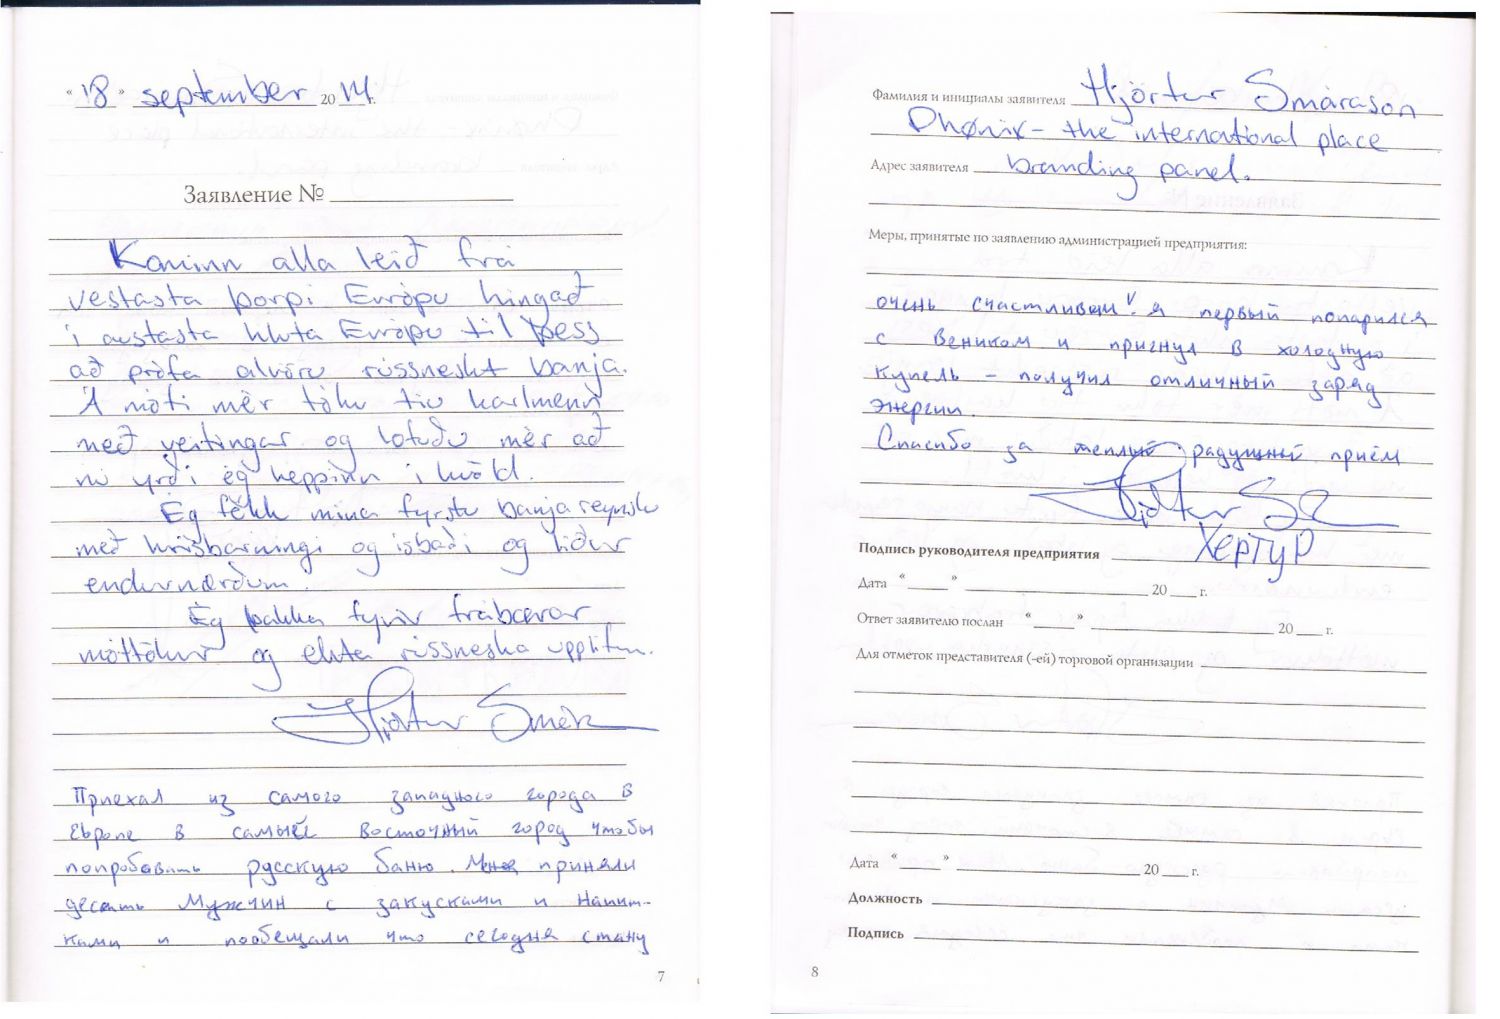 "18" september 20 14 г.
Заявление №
Kominn alla leið frá
vestasta þorpi Evrópu hingað
í austasta hluta Evrópu til þess
að prófa alvöru rússneskt banja.
Á móti mér tóku tíu karlmenn
með veitingar og lofuðu mér að
nú yrði ég heppinn í kvöld.
Ég fékk mína fyrstu banja reynslu
með hrísbarningi og ísbaði og líður
endurnærðum.
Ég þakka fyrir frábærar
móttökur og ekta rússneska upplifun.
Hjörtur Smár
Приехал из самого западного города в
Европе в самый восточный город чтобы
попробовать русскую баню. Меня приняли
десять мужчин с закусками и напит-
ками и пообещали что сегодня стану
7
Фамилия и инициалы заявителя Hjörtur Smárason
Phønix - the international place
Адрес заявителя branding panel.
Меры, принятые по заявлению администрацией предприятия:
очень счастливым. Я первый попарился
с веником и пригнул в холодную
купель – получил отличный заряд
энергии.
Спасибо за теплый радушный приём
Hjörtur
Подпись руководителя предприятия ХЕРТУР
Дата " " 20 г.
Ответ заявителю послан " " 20 г.
Для отметок представителя (-ей) торговой организации
Дата " " 20 г.
Должность
Подпись
8